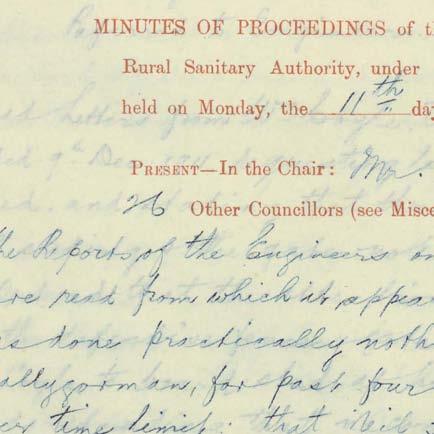 MINUTES OF PROCEEDINGS of
Rural Sanitary Authority, under
held on Monday, the 11th day
PRESENT—In the Chair: Mr.
26 Other Councillors (see Misce
the Reports of the Engineers on
are read from which it appea
s done practically noth
allygorman, for past four
time limit: that